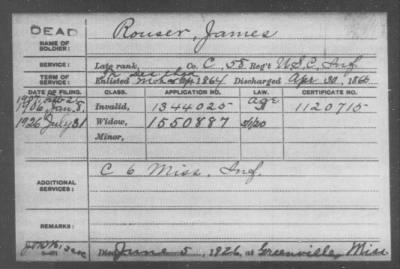 DEAD
NAME OF SOLDIER:
Rouser, James
SERVICE:
Late rank, Co. C, 55 Reg't U.S.C. Inf
TERM OF SERVICE:
Enlisted 1864 Discharged Apr 30, 1866
DATE OF FILING. CLASS. APPLICATION NO. LAW. CERTIFICATE NO.
Invalid, 1344025 Age 1120715
1926 July 31 Widow, 1550887
Minor,
ADDITIONAL SERVICES:
C 6 Miss. Inf.
REMARKS:
Died June 5, 1926, at Greenville, Miss